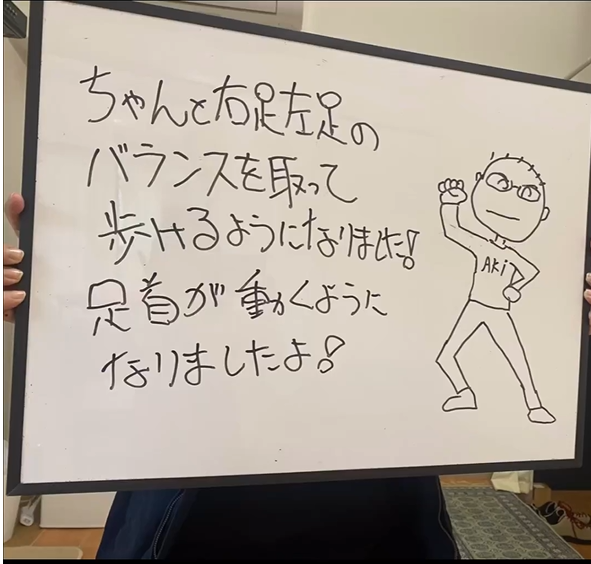 ちゃんと右足左足の
バランスを取って
歩けるようになりました!
足首が動くように
なりましたよ!
AKi